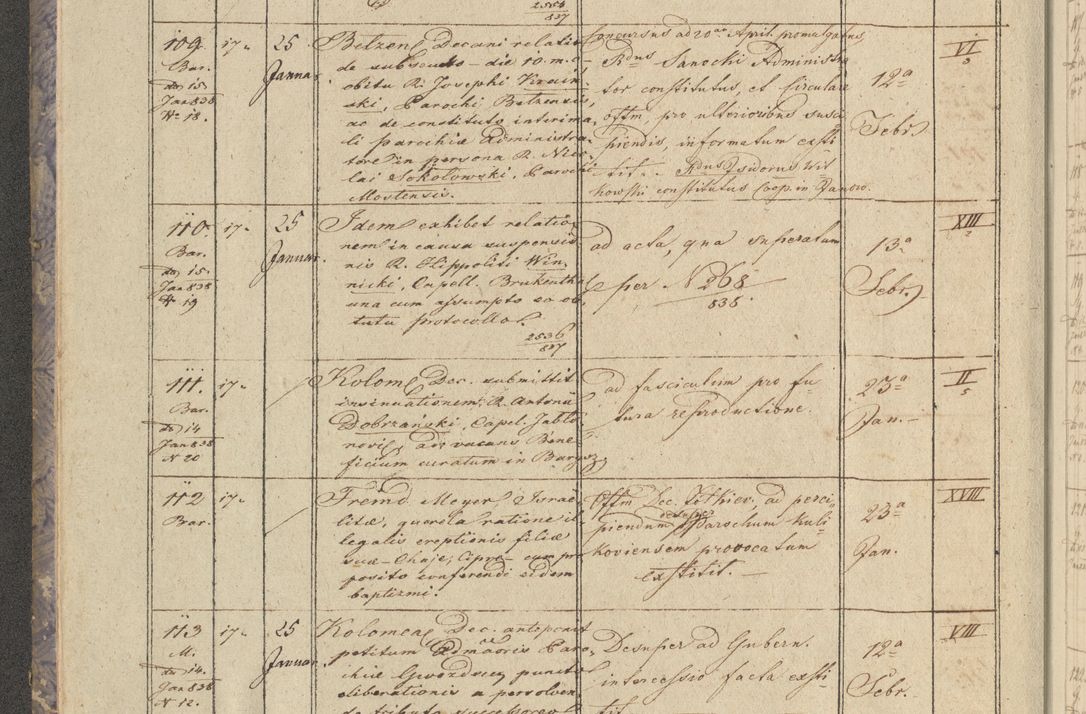 2554
837
109. 17. 25 Januar.
Bar.
do 15
Jan 838
N 18.
Belzen Decani relatio
de subsecuto die 10. m. c.
obitu R. Josephi
ski, Parochi Belzensis,
ac de constituto interima
li parochiæ Administra
tore in persona R. Nico
lai Sokołowski, Parochi
Mostensis.
Concursus ad 20am April. promulgatus,
Rdus Sanocki Administra
tor constitutus, et Circulare
offm, pro ulterioribus susci
piendis, informatum exsti
tit. Rdus Isidorus Wit
kowski constitutus Coop. in Janow.
12a
Febr.
VI
3
110. 17. 25 Januar.
Bar.
do 15.
Jan 838
N 19
Idem exhibet relatio
nem in causa suspensio
nis R. Hippoliti Win
nicki, Capell. Brukenthal
una cum assumpto eo ob
tutu protocollo.
2536
837
ad acta, qua superatum
per N 268
838.
13a
Febr.
XIII
2
111. 17.
Bar.
do 14
Jan 838
N 20
Kolom. Dec. submittit
insinuationem R. Antonii
Dobrzański, Capel. Jabło
novi, ad vacans Bene
ficium curatum in
ad fasciculum pro fu
tura reproductione.
23a
Jan.
II
5
112 17.
Bar.
Fremd Meyer Israe
litæ, querela ratione il
legalis ereptionis filiæ
suæ Chaje, Cipre cum pro
posito conferendi eidem
baptismi.
Offm Dec. ad perci
piendum desuper Parochum Kuli
koviensem provocatum
exstitit.
23a
Jan.
XVIII
113 17. 25 Januar.
M.
do 14.
Jan 838
N 12.
Kolomeae Dec. anteponit
petitum Admaoris Paro
chiæ puncto
liberationis a persolven
do tributo successoreo
Desuper ad Gubern.
intercessio facta exsti
tit.
12a
Febr.
VIII